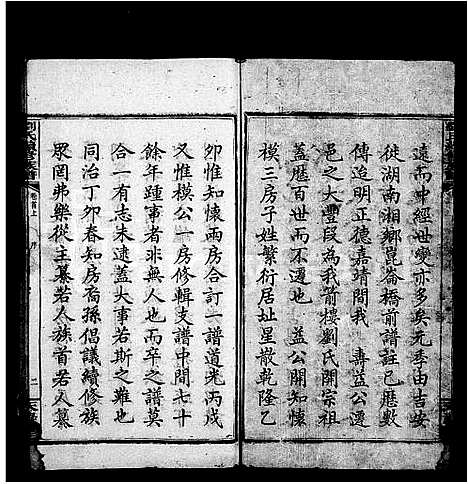 遠而中經世變亦多矣元季由吉安
徙湖南湘鄉崑崙橋前譜註已歷數
傳迨明正德嘉靖間我 壽益公
邑之大豐段為我前樓劉氏開宗祖
蓋歷百世而不遷也 益公開知懷
模三房子姓繁衍居址星散乾隆乙
卯惟知懷兩房合訂一譜道光丙戌
又惟模公一房修輯支譜中間七十
餘年踵事者非無人也而卒之譜莫
合一有志未逮蓋大事若斯之難也
同治丁卯春知房喬孫倡議續修族
眾罔弗樂從主纂若人族首若人纂
卷首上
序
二